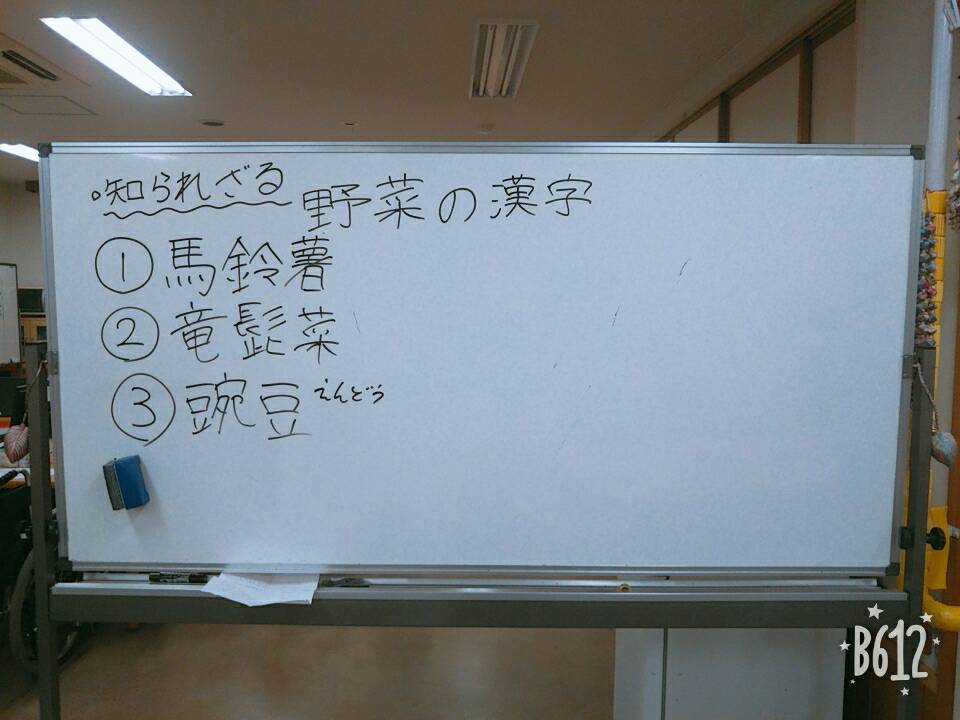 。知られざる 野菜の漢字
① 馬鈴薯
② 竜髭菜
③ 豌豆 えんどう
B612